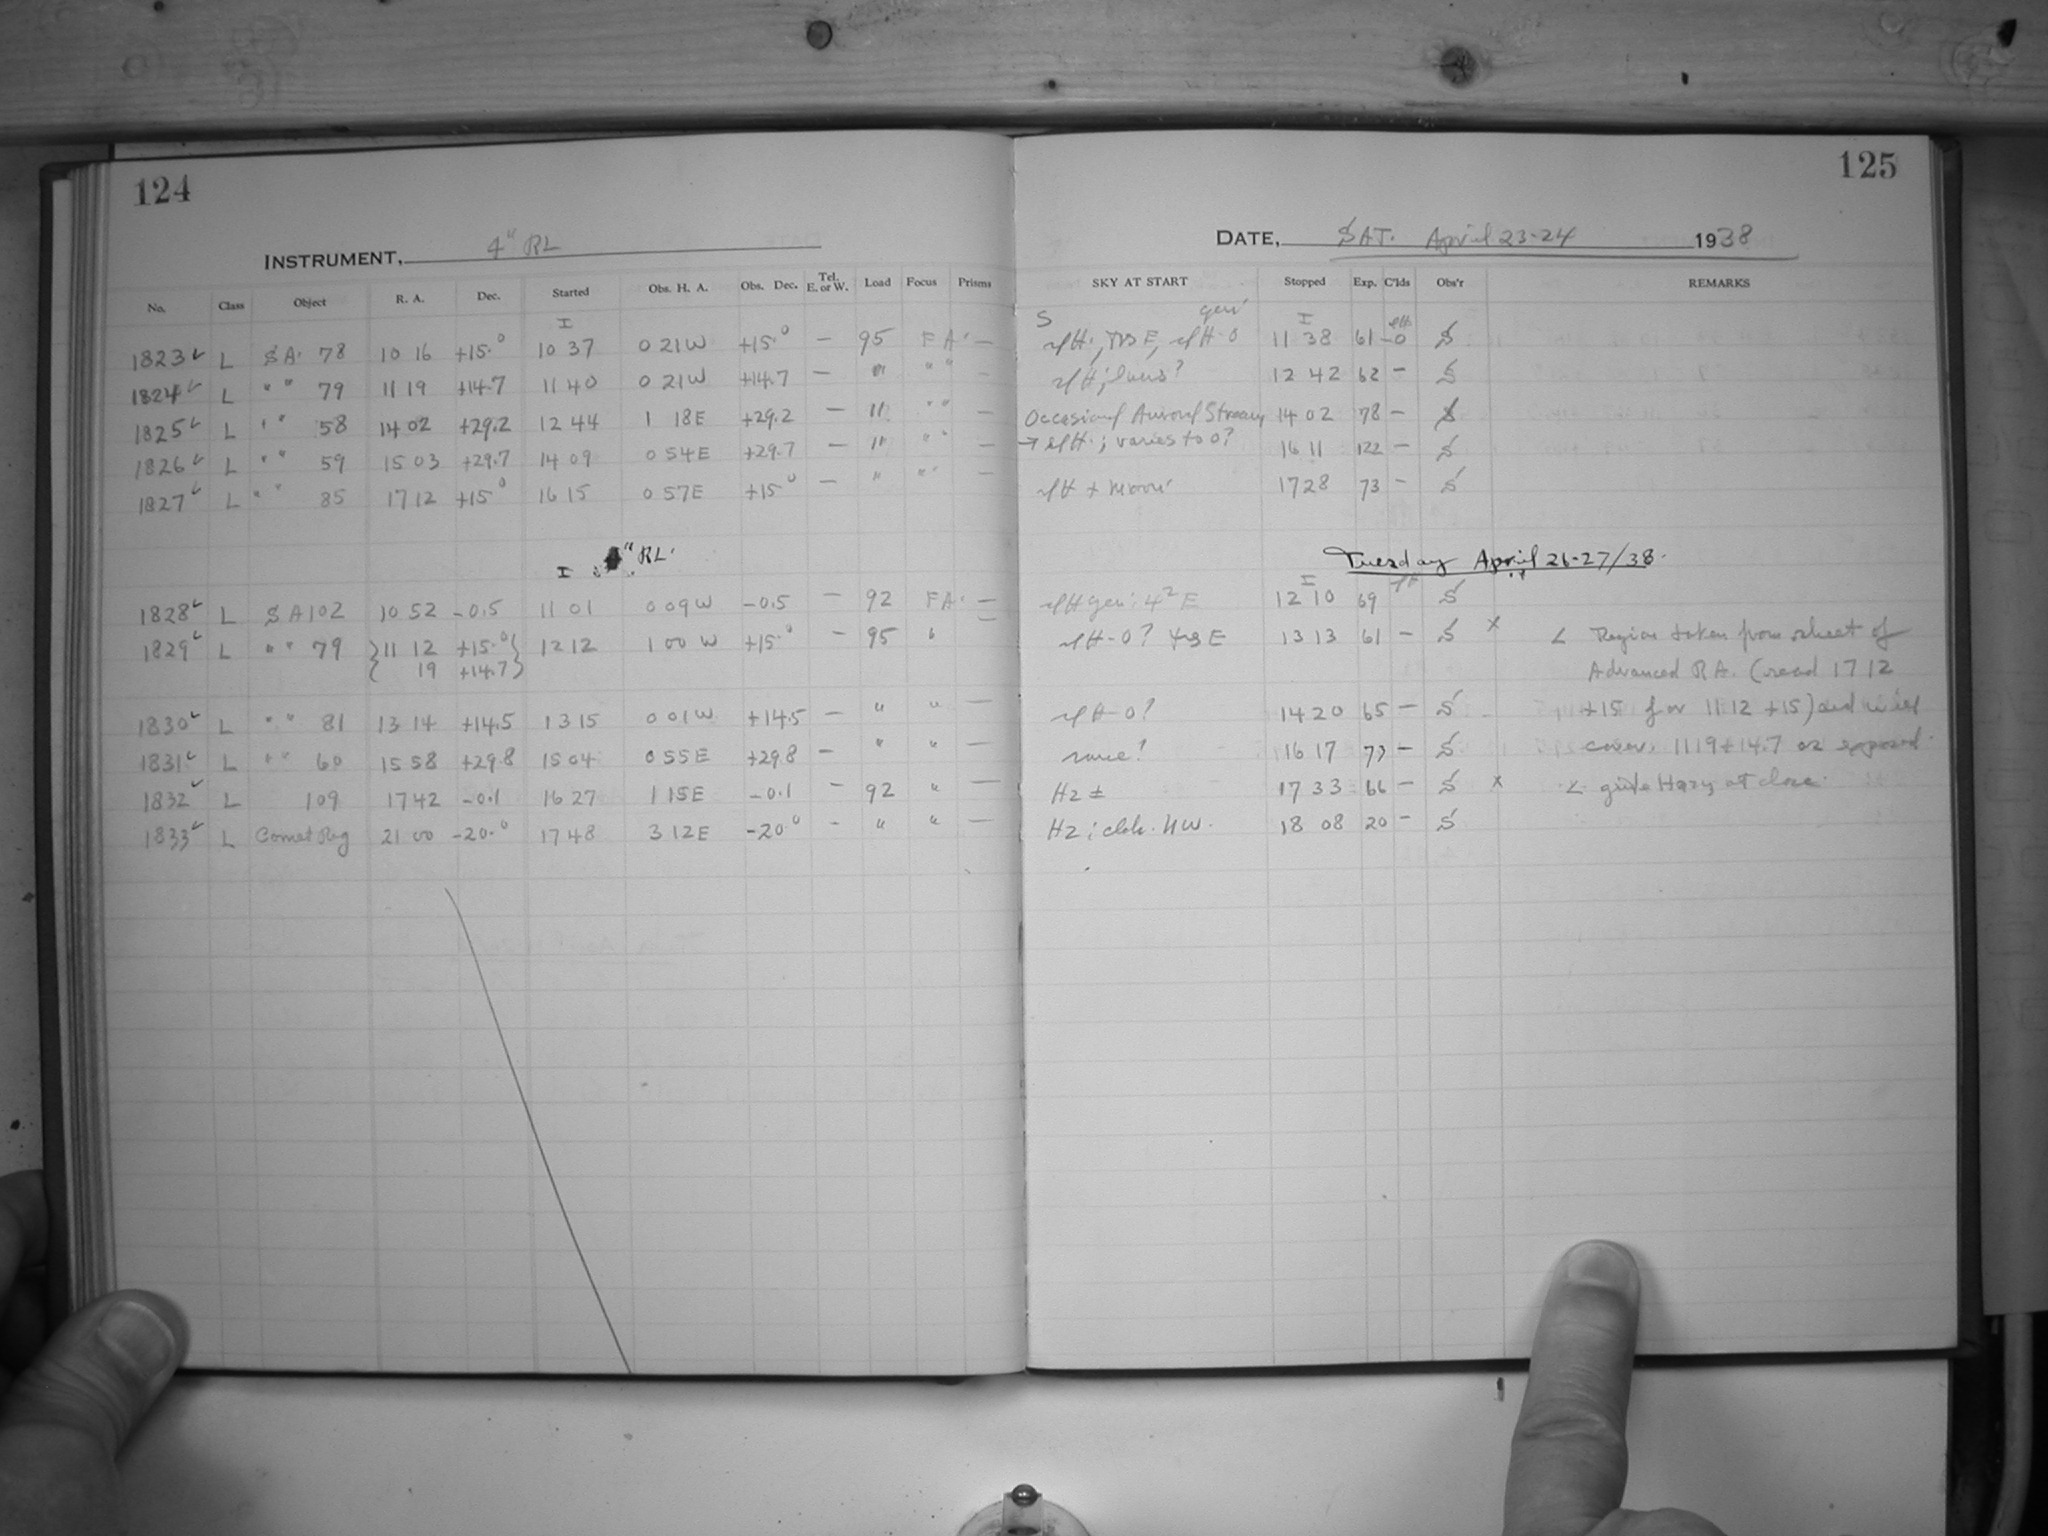 124
INSTRUMENT, 4" RL
No. Class Object R. A. Dec. Started Obs. H. A. Obs. Dec. Tel. E. or W. Load Focus Prisms
I
1823 L SA. 78 10 16 +15.° 10 37 0 21 W +15.° — 95 FA. —
1824 L " " 79 11 19 +14.7 11 40 0 21 W +14.7 — " " " —
1825 L " " 58 14 02 +29.2 12 44 1 18 E +29.2 — " " " —
1826 L " " 59 15 03 +29.7 14 09 0 54 E +29.7 — " " " —
1827 L " " 85 17 12 +15° 16 15 0 57 E +15° — " " " —
I " RL.
1828 L SA 102 10 52 -0.5 11 01 0 09 W -0.5 — 92 FA. —
1829 L " " 79 11 12 +15.° 12 12 1 00 W +15.° — 95
19 +14.7
1830 L " " 81 13 14 +14.5 13 15 0 01 W +14.5 — " " —
1831 L " " 60 15 58 +29.8 15 04 0 55 E +29.8 — " " —
1832 L 109 17 42 -0.1 16 27 1 15 E -0.1 — 92 " —
1833 L Comet Reg 21 00 -20.° 17 48 3 12 E -20° — " " —
125
DATE, SAT. April 23-24 1938
SKY AT START Stopped Exp. C'lds Obs'r REMARKS
S I
E, 11 38 61 -0 S
12 42 62 — S
Occasional Auroral 14 02 78 — S
→ ; varies to 0? 16 11 122 — S
+ Moon 17 28 73 — S
Tuesday April 26-27/38.
I
E 12 10 69 S
-0? E 13 13 61 — S x < Region taken from sheet of
Advanced RA. (read 17 12
-0? 14 20 65 — S +15 for 11 12 +15) and
16 17 73 — S 11 19 +14.7 as exposed.
Hz ± 17 33 66 — S x < Hazy at close.
Hz; NW. 18 08 20 — S